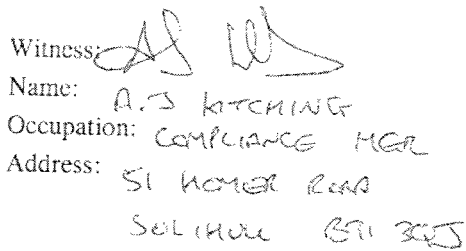 Witness:
Name: A.J KITCHING
Occupation: COMPLIANCE MGR
Address: 51 HOMER ROAD
SOLIHULL